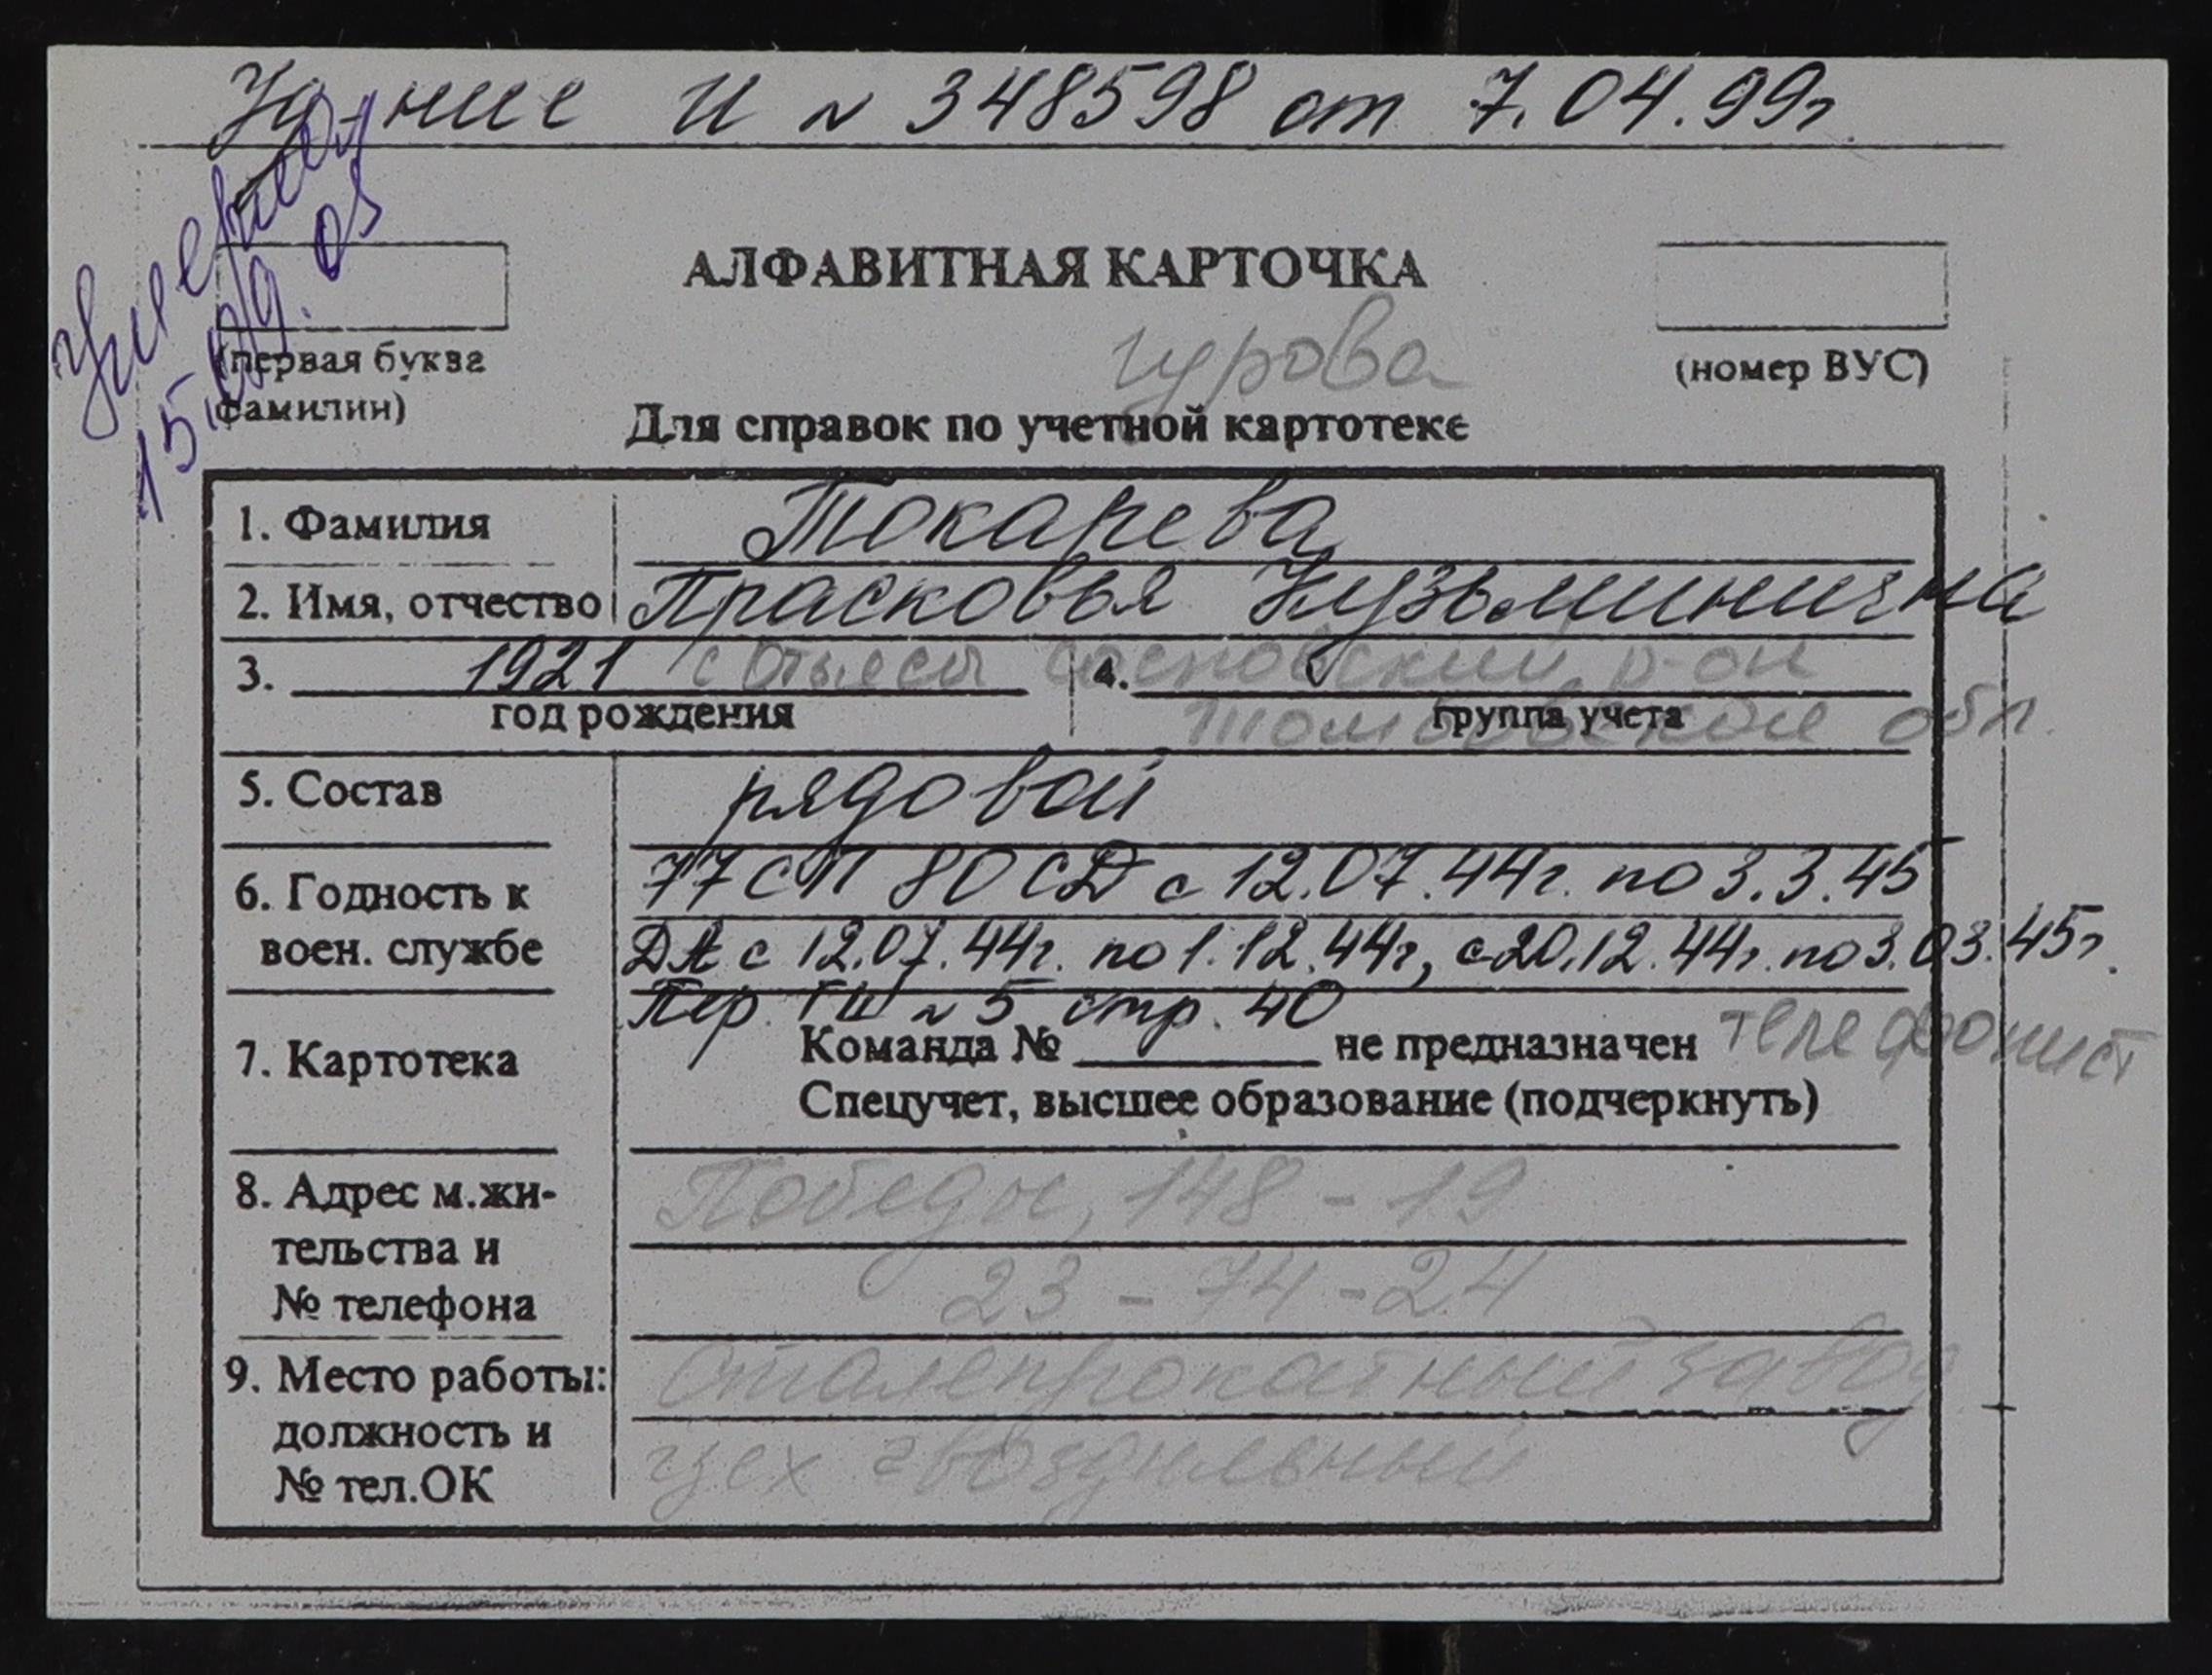 Уд-ние И № 348598 от 7.04.99г.
Умерла
15.09.05
АЛФАВИТНАЯ КАРТОЧКА
(первая буква
фамилии)
(номер ВУС)
Гурова
Для справок по учетной картотеке
1. Фамилия Токарева
2. Имя, отчество Прасковья Кузьминична
3. 1921 Сосновский р-он
4.
год рождения группа учета Тамбовской обл.
5. Состав рядовой
6. Годность к
воен. службе
77 СП 80 СД с 12.07.44г. по 3.3.45
ДА с 12.07.44г. по 1.12.44г, с 20.12.44г. по 3.03.45г.
Пер. ГШ № 5 стр. 40
7. Картотека
Команда № не предназначен телефонист
Спецучет, высшее образование (подчеркнуть)
8. Адрес м.жи-
тельства и
№ телефона
Победы, 148 - 19
23 - 74 - 24
9. Место работы:
должность и
№ тел.ОК
Сталепрокатный завод
цех гвоздильный